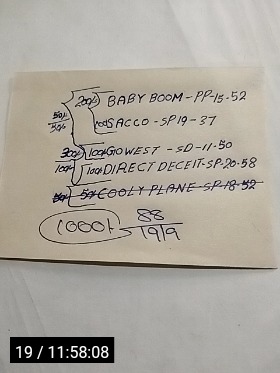 200/- BABY BOOM - PP-15-52
50/-
50/- 100/- SACCO - SP 19 - 37
300/- 100/- GOWEST - SD - 11-50
100/- 100/- DIRECT DECEIT-SP-20-58
50/- 50/- COOLY PLANE - SP-18-52
1000/- 88
1919
19 / 11:58:08